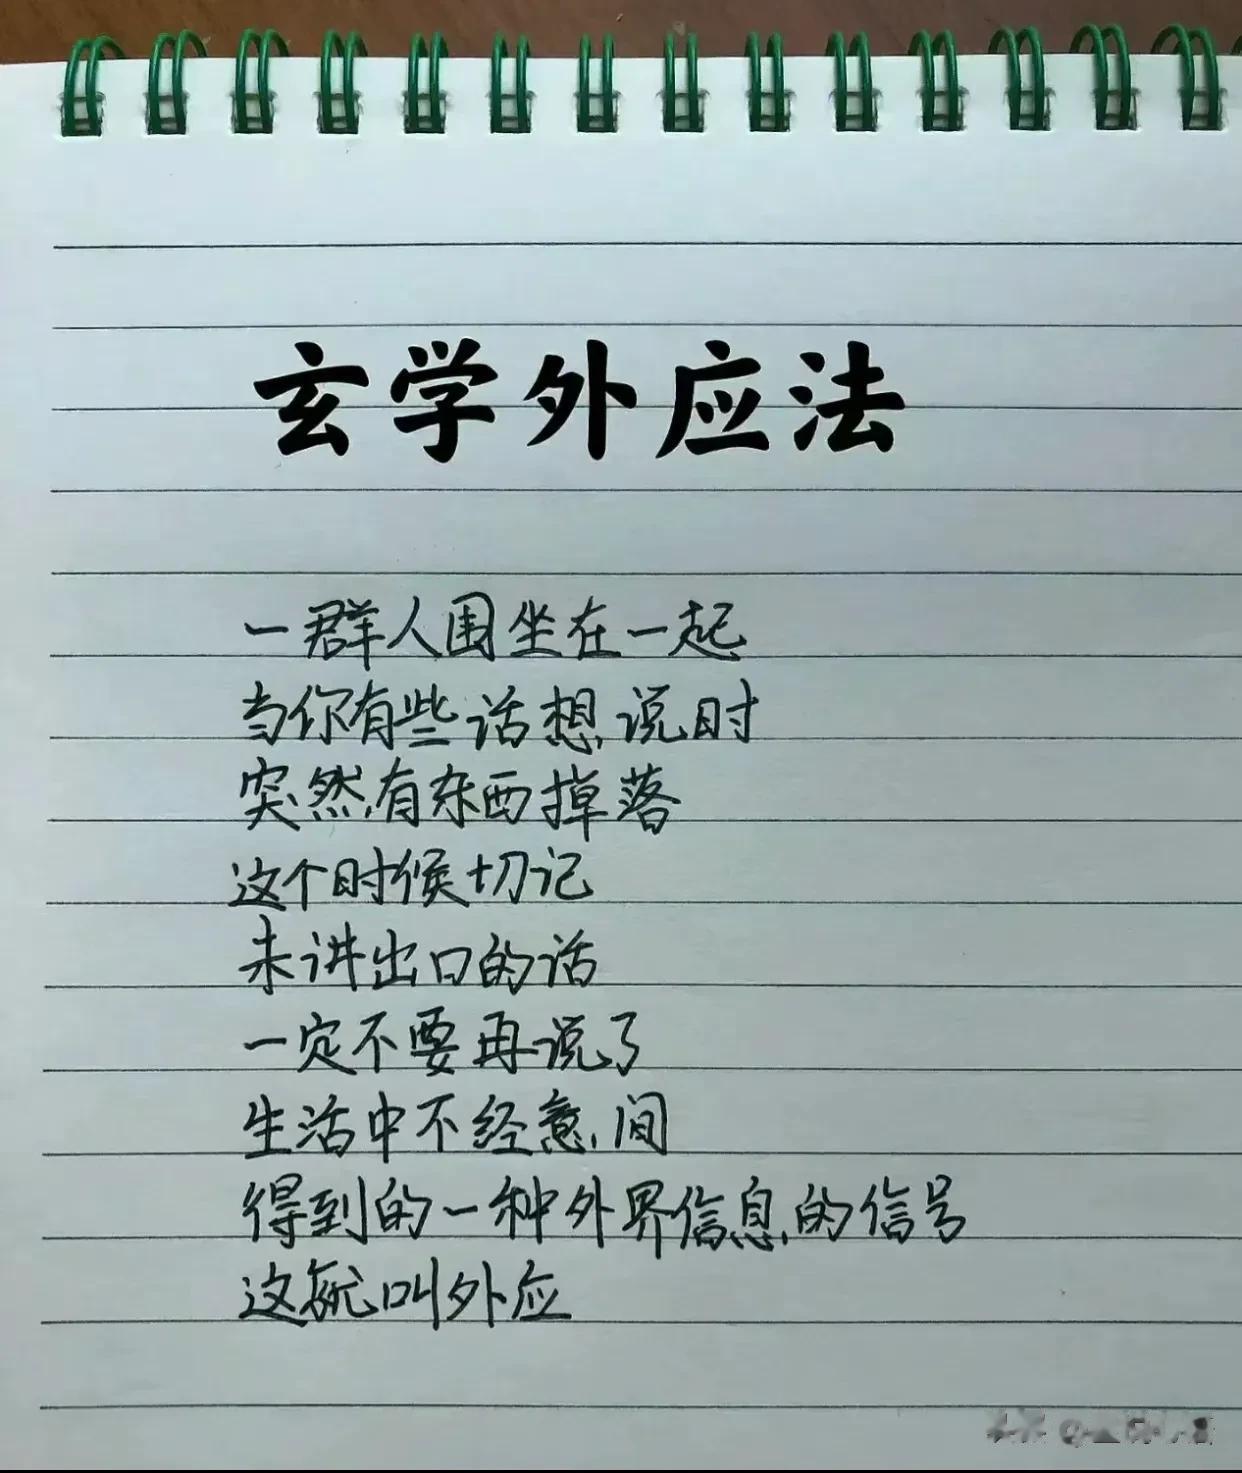 玄学外应法
一群人围坐在一起
当你有些话想说时
突然有东西掉落
这个时候切记
未讲出口的话
一定不要再说了
生活中不经意间
得到的一种外界信息的信号
这就叫外应